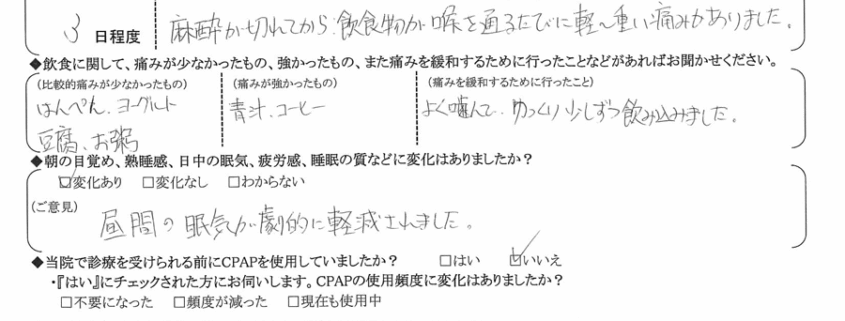 3 日程度 麻酔が切れてから、飲食物が喉を通るたびに軽〜重い痛みがありました。
◆飲食に関して、痛みが少なかったもの、強かったもの、また痛みを緩和するために行ったことなどがあればお聞かせください。
(比較的痛みが少なかったもの) (痛みが強かったもの) (痛みを緩和するために行ったこと)
はんぺん、ヨーグルト 青汁、コーヒー よく噛んで、ゆっくり少しずつ飲み込みました。
豆腐、お粥
◆朝の目覚め、熟睡感、日中の眠気、疲労感、睡眠の質などに変化はありましたか?
☑変化あり □変化なし □わからない
(ご意見) 昼間の眠気が劇的に軽減されました。
◆当院で診療を受けられる前にCPAPを使用していましたか? □はい ☑いいえ
・『はい』にチェックされた方にお伺いします。CPAPの使用頻度に変化はありましたか?
□不要になった □頻度が減った □現在も使用中